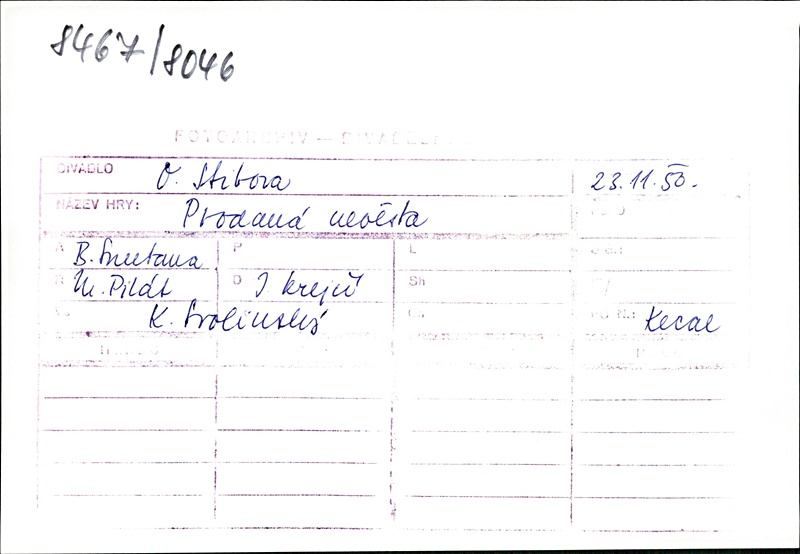 8467/8046
FOTOARCHIV — DIVADELNÍ
DIVADLO O. Stibora 23.11.50.
NÁZEV HRY: Prodaná nevěsta
A B. Smetana P L
R M. Pilát D I Krejčí Sh
K. Svolinský Kecal